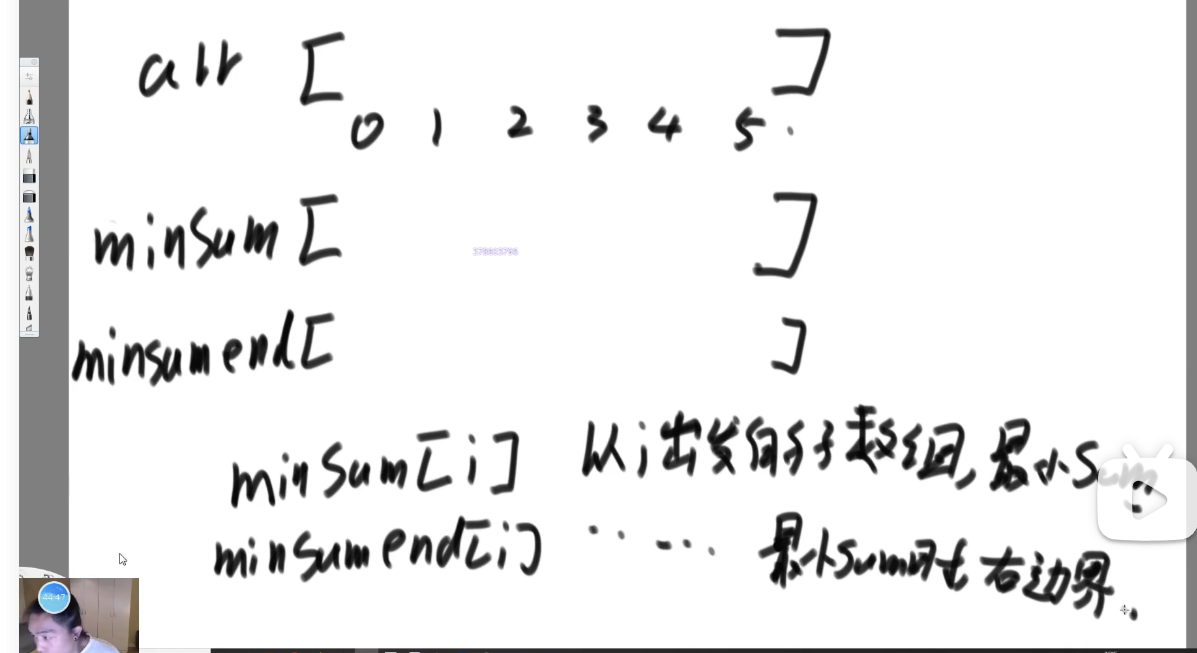 arr [ ]
0 1 2 3 4 5
minSum [ ]
minsumend [ ]
minSum[i] 从i出发的子数组，最小Sum
minsumend[i] ‥‥‥ 最小Sum时右边界.
44:47